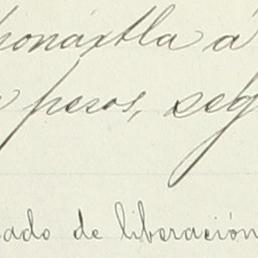 ponáxtla á
pesos, seg
ado de liberación